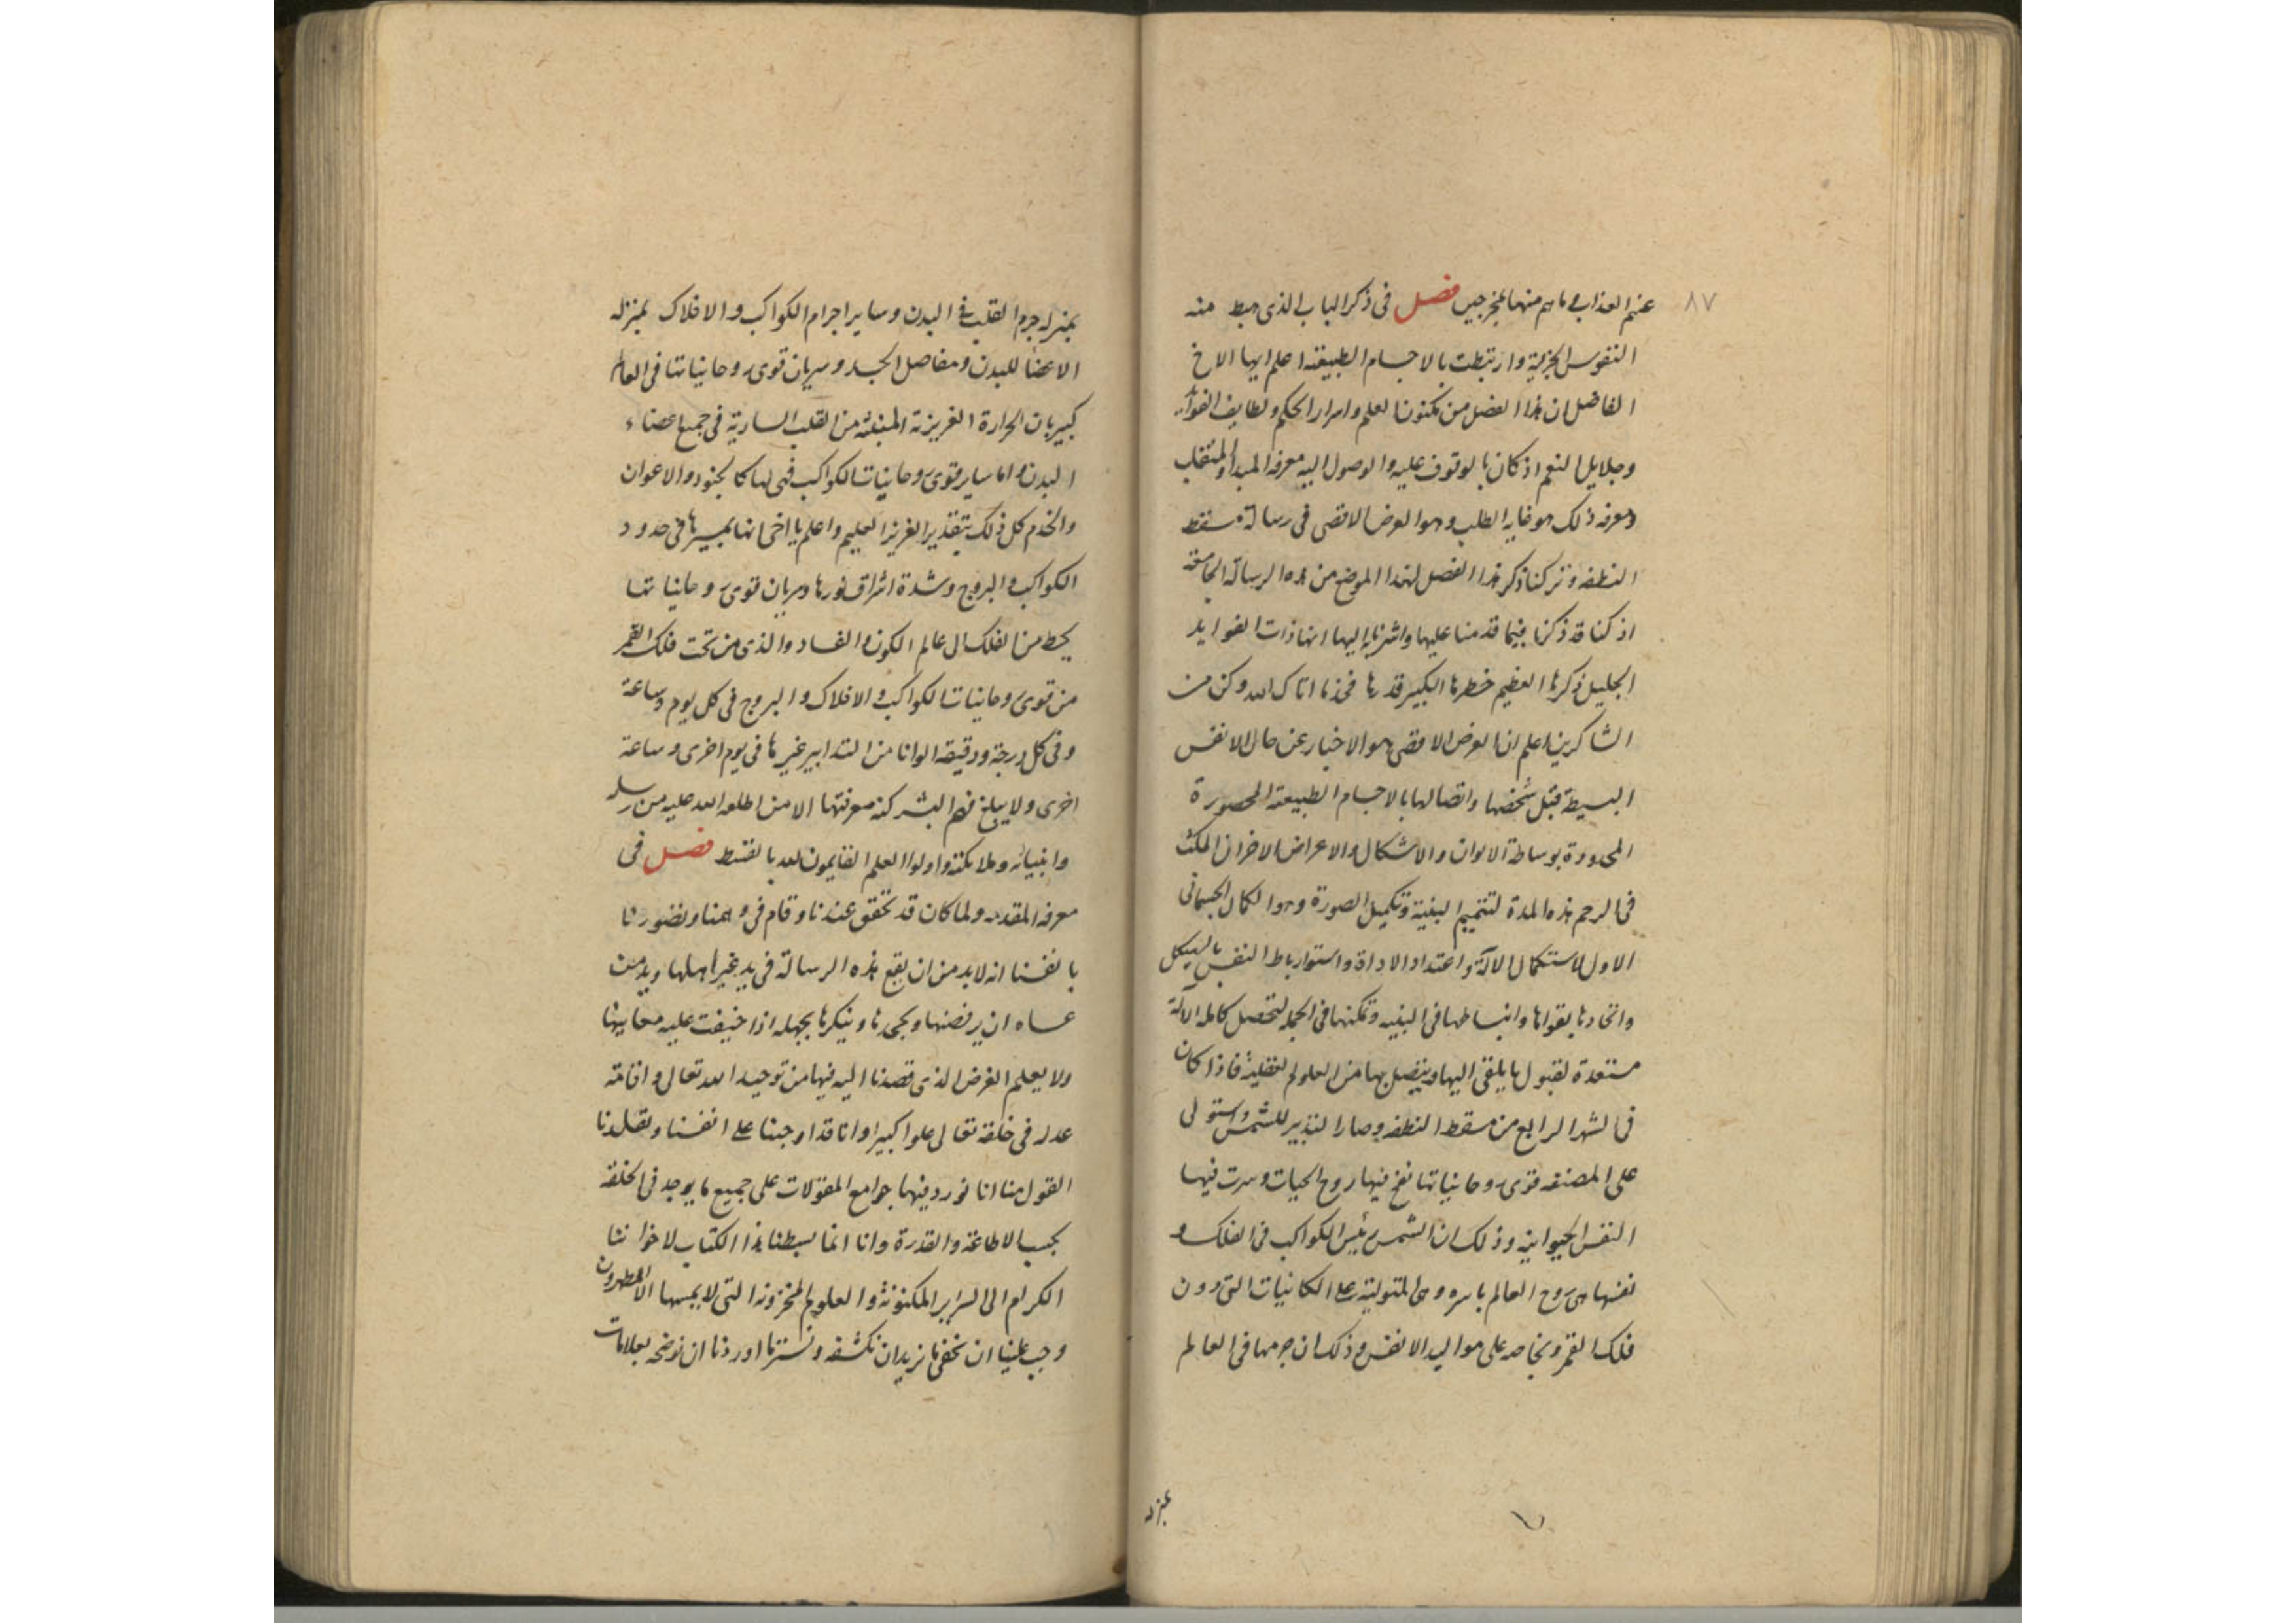 ٨٧
عنهم العذاب وما هم منها بمخرجين فصل فى ذكر الباب الذى هبط منه
النفوس الجزئية وارتبطت بالاجسام الطبيعية اعلم ايها الاخ
الفاضل ان هذا الفصل من مكنون العلم واسرار الحكم ولطايف الفوائد
وجلايل النعم اذ كان بالوقوف عليه والوصول اليه معرفة المبدأ والمنقلب
ومعرفة ذلك هو غاية الطلب وهو الغرض الاقصى فى رسالة مسقط
النطفة وتركنا ذكر هذا الفصل لهذا الموضع من هذه الرسالة الجامعة
اذ كنا قد ذكرنا فيما قدمنا عليها واشرنا اليها انها ذات الفوايد
الجليل ذكرها العظيم خطرها الكبير قدرها فخذ ما اتاك الله وكن من
الشاكرين اعلم ان الغرض الاقصى هو الاخبار عن حال الانفس
البسيطة قبل تشخصها واتصالها بالاجسام الطبيعية المحصورة
المحدودة بوساطة الالوان والاشكال والاعراض الاخر ان المكث
فى الرحم هذه المدة لتتميم البنية وتكميل الصورة وهو الكمال الجسمانى
الاول لاستكمال الآلة واعتداد الاداة واستوا رباط النفس بالهيكل
واتحادها بقواها وانبساطها فى البنية وتمكنها فى الجملة لتحصيل كاملة الآلة
مستعدة لقبول ما يلقى اليها ويتصل بها من العلوم العقلية فاذا كان
فى الشهر الرابع من مسقط النطفة وصار التدبير للشمس واستولى
على المضغة قوى روحانياتها نفخ فيها روح الحيات وسرت فيها
النفس الحيوانية وذلك ان الشمس رئيس الكواكب فى الفلك و
نفسها هى روح العالم باسره وهى المتولية على الكائنات التى دون
فلك القمر وبخاصة على مواليد الانفس وذلك ان جرمها فى العالم
بمنزلة
بمنزلة جرم القلب فى البدن وساير اجرام الكواكب والافلاك بمنزلة
الاعضا للبدن ومفاصل الجسد وسريان قوى روحانياتها فى العالم
كسريان الحرارة الغريزية المنبثة من القلب السارية فى جميع اعضاء
البدن واما ساير قوى روحانيات الكواكب فهى لها كالجنود والاعوان
والخدم كل ذلك بتقدير العزيز العليم واعلم يا اخى انها بمسيرها فى حدود
الكواكب والبروج وشدة اشراق نورها وسريان قوى روحانياتها
يحط من الفلك الى عالم الكون والفساد والذى من تحت فلك القمر
من قوى روحانيات الكواكب والافلاك والبروج فى كل يوم وساعة
وفى كل درجة ودقيقة الوانا من التدابير غير ما فى يوم اخرى وساعة
اخرى ولا يبلغ فهم البشر كنه معرفتها الا من اطلعه الله عليه من رسله
وانبيائه وملائكته واولوا العلم القايمون لله بالقسط فصل فى
معرفة المقدمه ولما كان قد تحقق عندنا وقام فى وهمنا وتصورنا
بانفسنا انه لا بد من ان يقع هذه الرسالة فى يد غير اهلها ويد من
عساه ان يرفضها ويجحدها وينكرها بجهله اذا خفيت عليه معانيها
ولا يعلم الغرض الذى قصدنا اليه فيها من توحيد الله تعالى واقامة
عدله فى خلقه تعالى علوا كبيرا وانا قد اوجبنا على انفسنا وتقلدنا
القول منا انا نورد فيها جوامع المقولات على جميع ما يوجد فى الخلقة
بحسب الاطاعة والقدرة وانا انما بسطنا هذا الكتاب لاخواننا
الكرام الى السراير المكنونة والعلوم المخزونة التى لا يمسها الا المطهرون
وجب علينا ان نخفى ما نريد ان نكشفه ونستر ما اوردنا ان نوضحه بعلامات